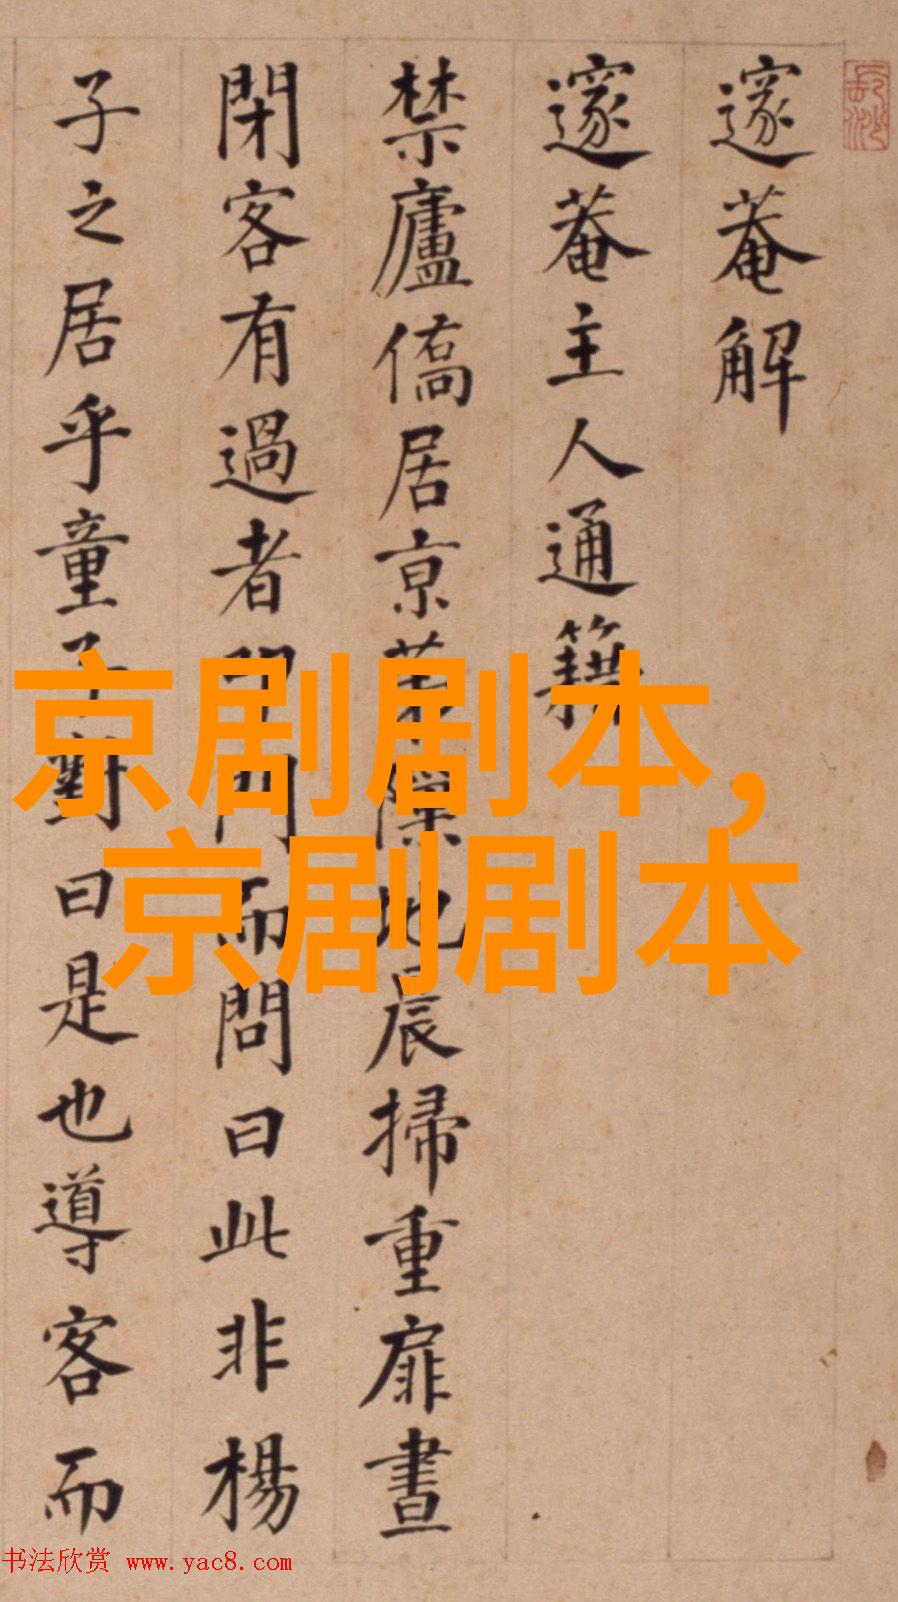 邃菴解
邃菴主人通籍
禁廬僑居京華隙地晨掃重扉晝
閉客有過者叩門而問曰此非楊
子之居乎童子對曰是也導客而
京剧剧本,
京剧剧本
书法欣赏 www.yac8.com